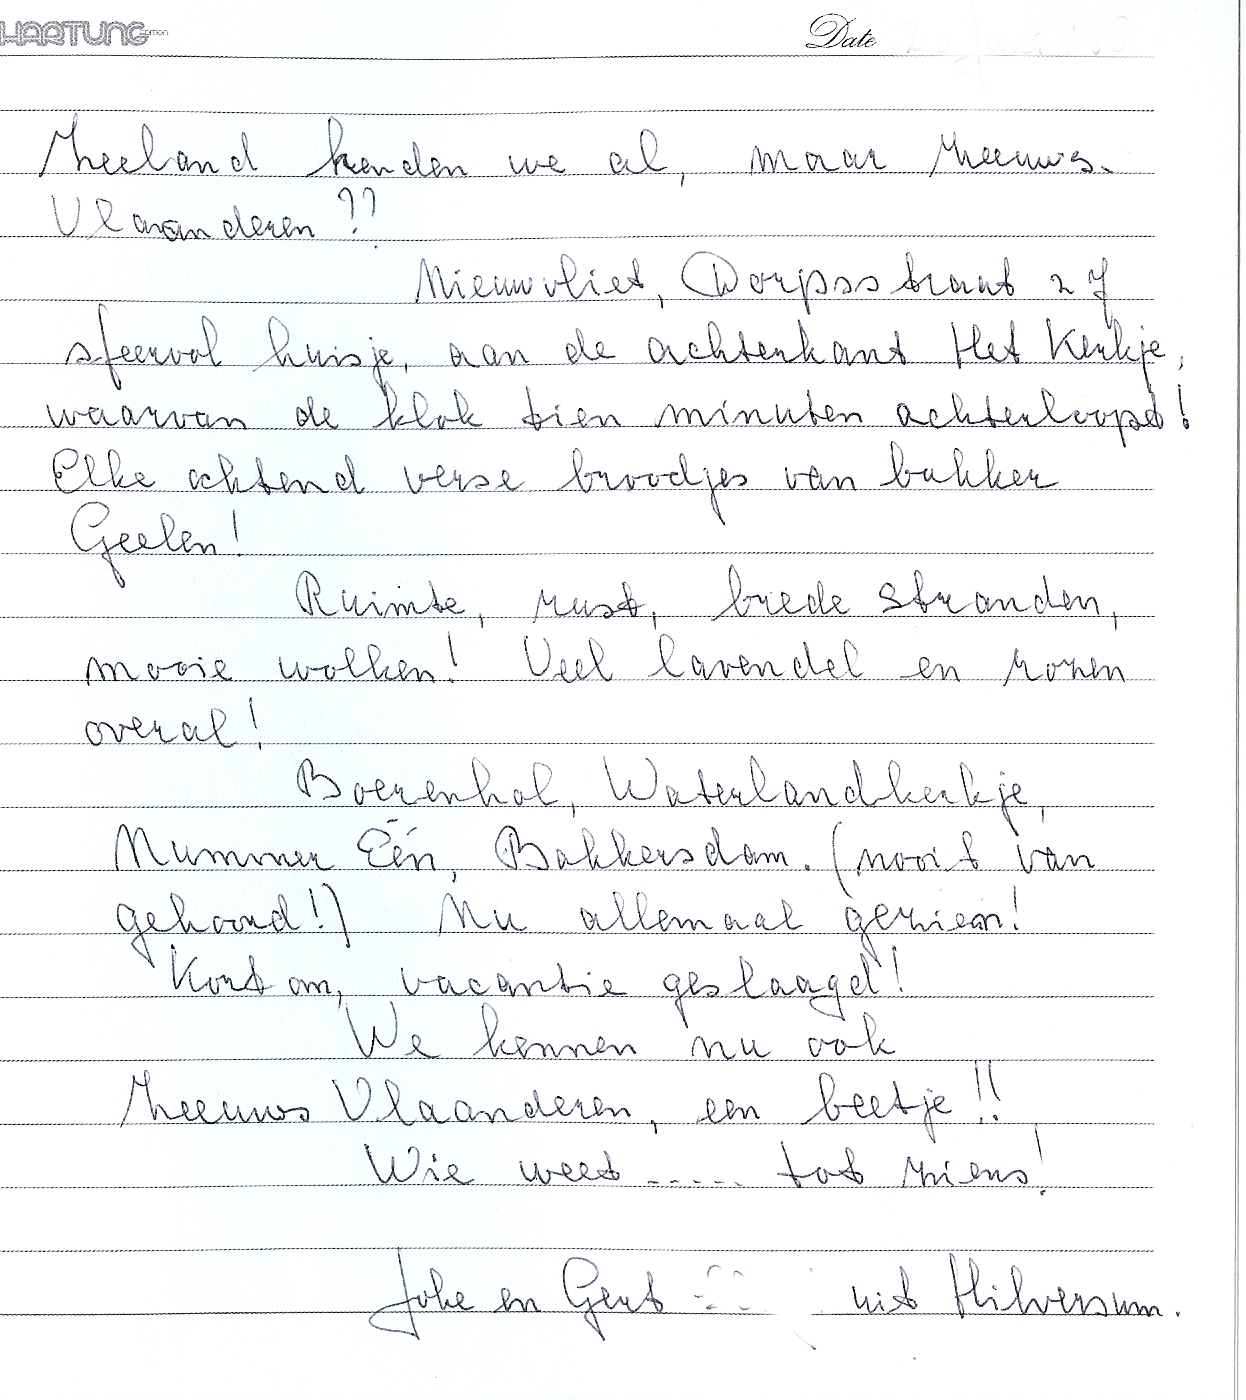 HARTUNG
Date
Zeeland kenden we al, maar Zeeuws-
Vlaanderen??
Nieuwvliet, Dorpsstraat 27
sfeervol huisje, aan de achterkant Het Kerkje,
waarvan de klok tien minuten achterloopt!
Elke ochtend verse broodjes van bakker
Geelen!
Ruimte, rust, brede stranden,
mooie wolken! Veel lavendel en rozen
overal!
Boerenhol, Waterlandkerkje,
Nummer Eén, Bakkersdam. (nooit van
gehoord!) Nu allemaal gezien!
Kort om, vacantie geslaagd!
We kennen nu ook
Zeeuws Vlaanderen, een beetje!!
Wie weet ..... tot ziens!
Joke en Gert uit Hilversum.